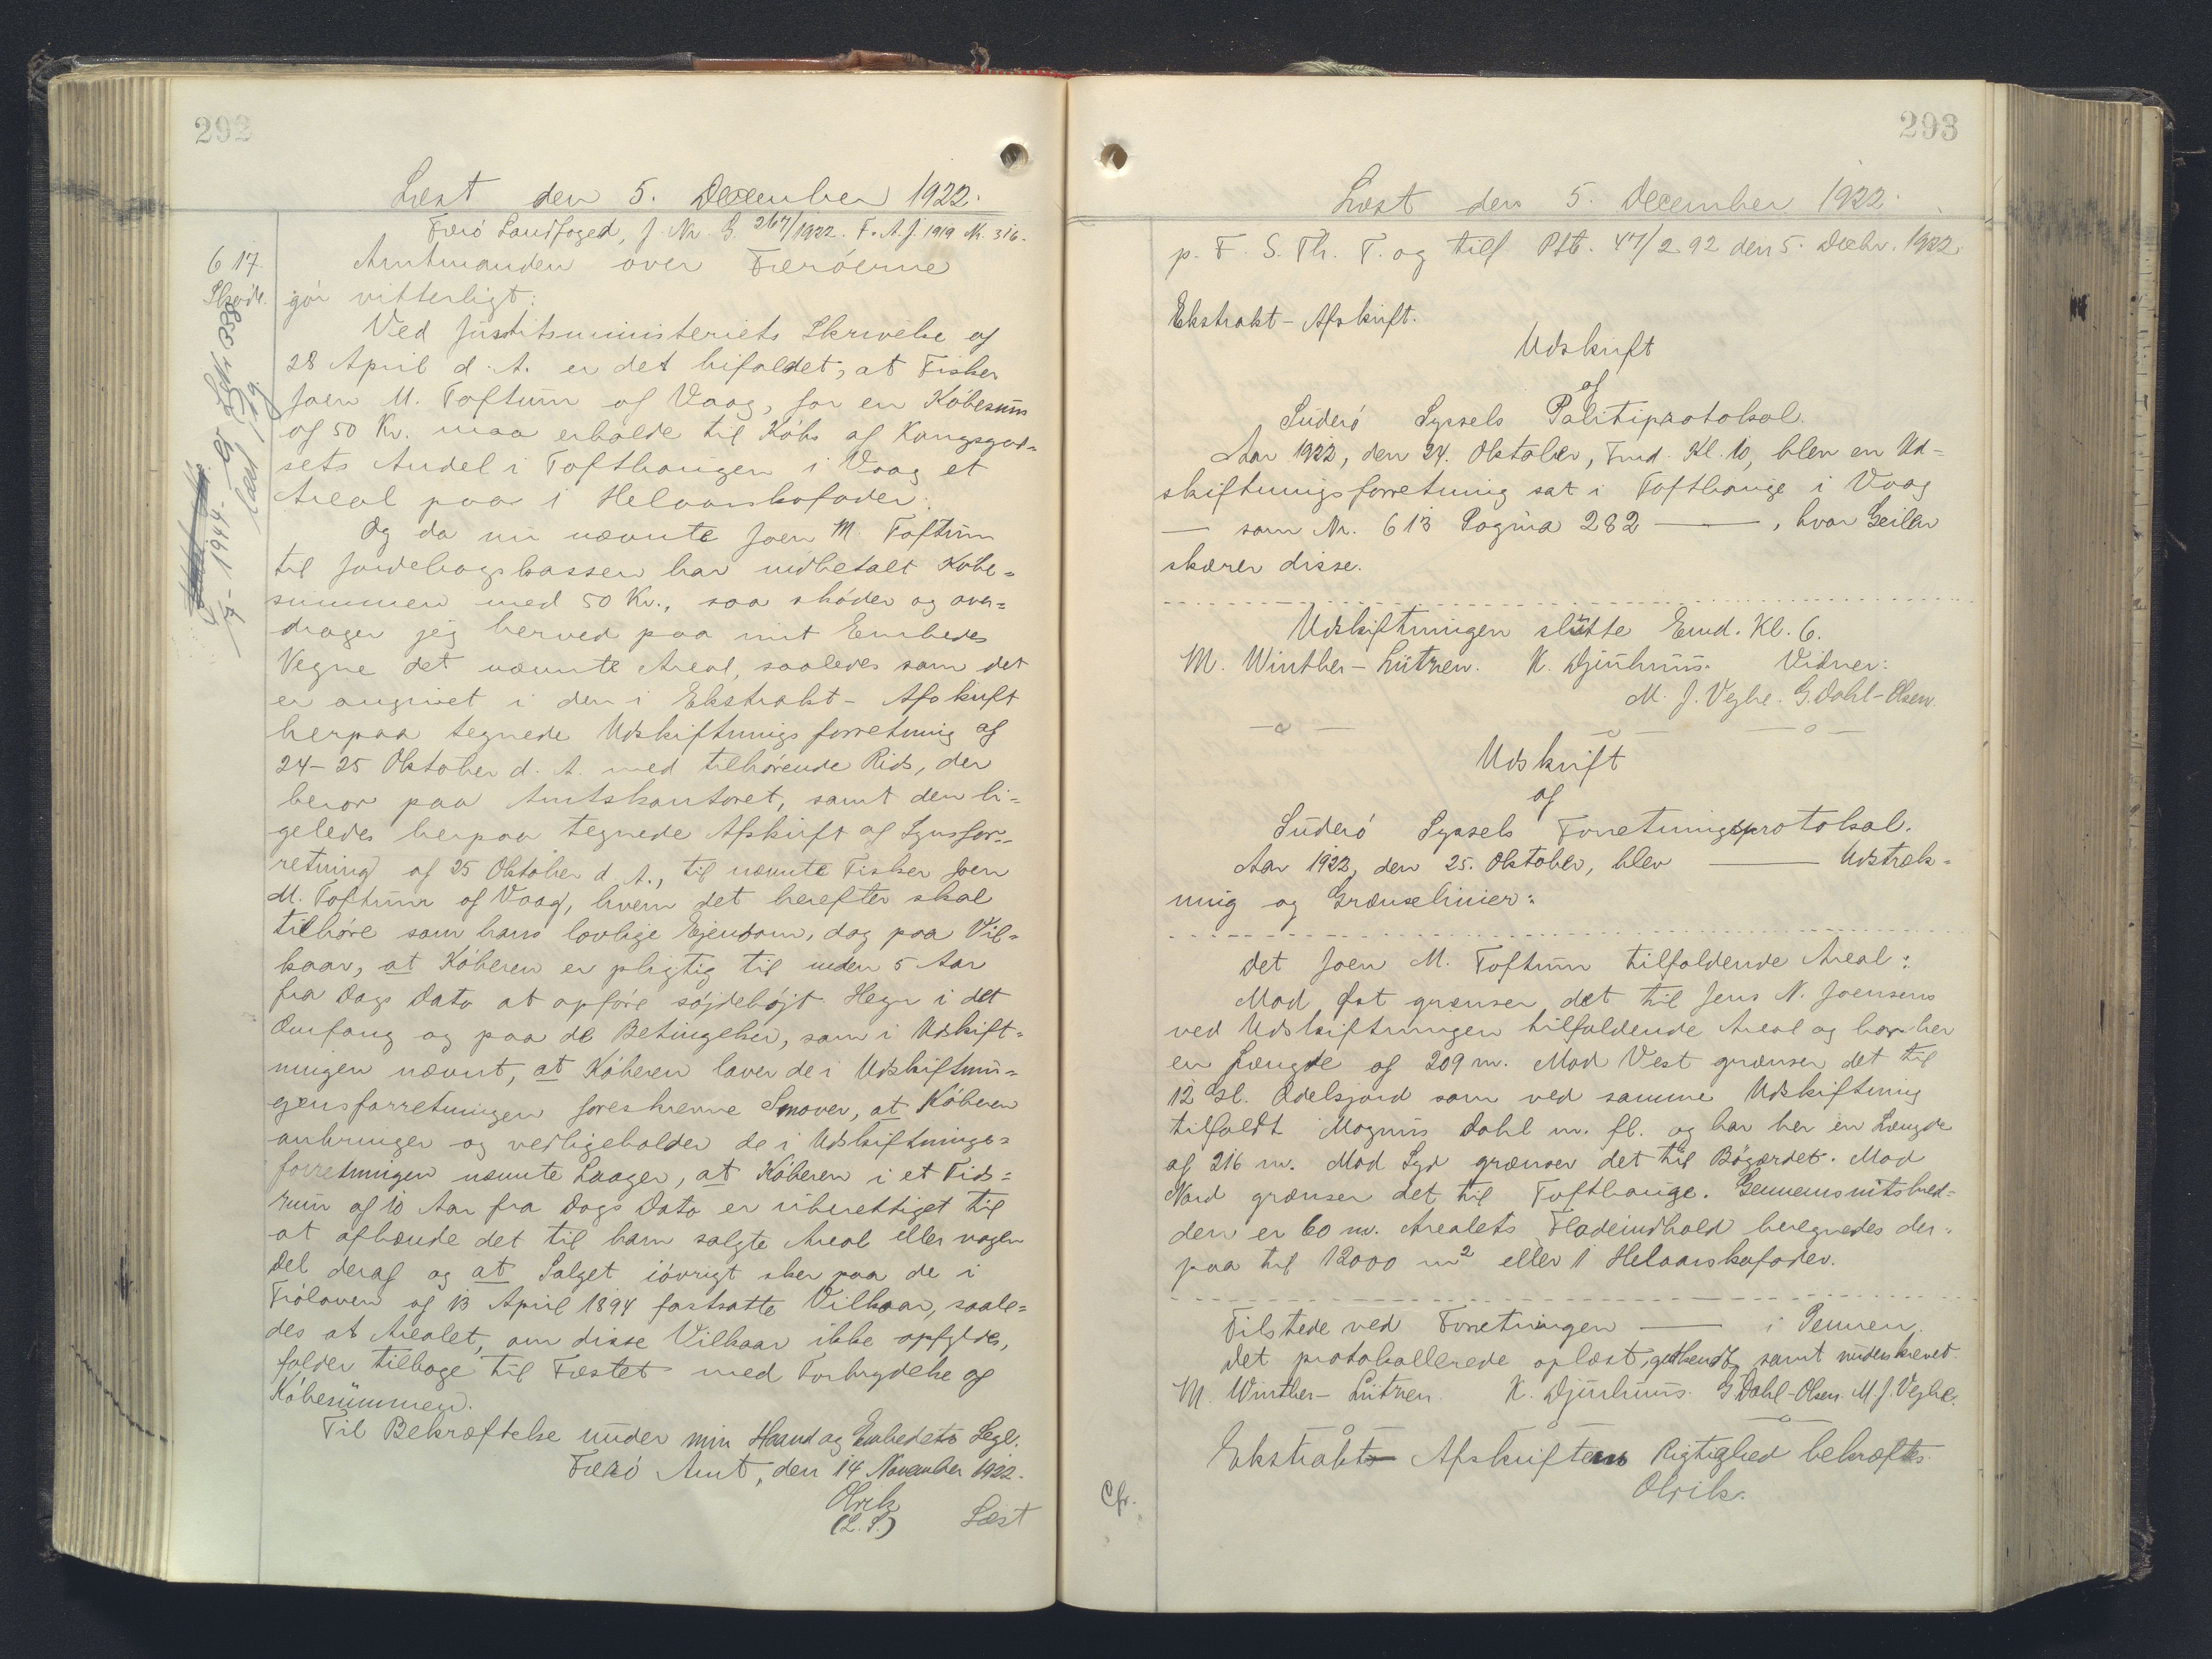 292
Læst den 5. December 1922.
Færö Landfoged, J. Nr. G. 267/1922. F. A. J. 1919 Nr. 316.
617
Skøde.
Amtmanden over Færöerne
gör vitterligt:
Ved Justitsministeriets Skrivelse af
28 April d. A. er det bifaldet, at Fisker
Joen M. Toftum af Vaag, for en Köbesum
af 50 Kr. maa erholde til Köbs af Kongsgod=
sets Andel i Tofthaugen i Vaag et
Areal paa 1 Helaarskofoder.
Og da nu nævnte Joen M. Toftum
til Jordebogskassen har indbetalt Köbe=
summen med 50 Kr., saa sköder og over=
drager jeg herved paa mit Embedes
Vegne det nævnte Areal, saaledes som det
er angivet i den i Ekstrakt-Afskrift
herpaa tegnede Udskiftningsforretning af
24-25 Oktober d. A. med tilhörende Rids, der
beror paa Amtskontoret, samt den li=
geledes herpaa tegnede Afskrift af Synsfor=
retning af 25 Oktober d. A., til nævnte Fisker Joen
M. Toftum af Vaag, hvem det herefter skal
tilhöre som hans lovlige Ejendom, dog paa Vil=
kaar, at Köberen er pligtig til inden 5 Aar
fra Dags Dato at opföre söjdehöjt Hegn i det
Omfang og paa de Betingelser, som i Udskift=
ningen nævnt, at Köberen laver de i Udskiftnin=
gensforretningen foreskrevne Smover, at Köberen
anbringer og vedligeholder de i Udskiftnings=
forretningen nævnte Laager, at Köberen i et Tids=
rum af 10 Aar fra Dags Dato er uberettiget til
at afhænde det til ham solgte Areal eller nogen
Del deraf og at Salget iövrigt sker paa de i
Fröloven af 13 April 1894 fastsatte Vilkaar, saale=
des at Arealet, om disse Vilkaar ikke opfyldes,
falder tilbage til Fæstet med Forbrydelse af
Köbesummen.
Til Bekræftelse under min Haand og Embedets Segl.
Færö Amt, den 14 November 1922.
Olrik
(L. S.) Læst
293
Læst den 5. December 1922.
p. F. S. Th. T. og tilf Ptb. 47/292 den 5. Decbr. 1922.
Ekstrakt-Afskrift.
Udskrift
af
Suderö Syssels Politiprotokol.
Aar 1922, den 24. Oktober, Fmd. Kl. 10, blev en Ud=
skiftningsforretning sat i Tofthauge i Vaag
— som Nr. 613 Pagina 282 —, hvor Geilar
skærer disse.
Udskiftningen slutte Emd. Kl. 6.
M. Winther-Lützen. K. Djurhuus. Vidner:
M. J. Veyhe. G. Dahl-Olsen.
—o— —o— —o—
Udskrift
af
Suderö Syssels Forretningsprotokol.
Aar 1922, den 25. Oktober, blev — Udstræk=
ning og Grænselinier:
Det Joen M. Toftum tilfaldende Areal:
Mod Øst grænser det til Jens N. Joensens
ved Udskiftningen tilfaldende Areal og har her
en Længde af 209 m. Mod Vest grænser det til
12 Gl. Odelsjord som ved samme Udskiftning
tilfaldt Magnus Dahl m. fl. og har her en Længde
af 216 m. Mod Syd grænser det til Bögærdet. Mod
Nord grænser det til Tofthauge. Gennemsnitsbred=
den er 60 m. Arealets Fladeindhold beregnedes der=
paa til 12000 m² eller 1 Helaarskofoder.
Tilstede ved Forretningen — i Gennem.
Det protokollerede oplæst, godkendt, samt underskrevet.
M. Winther-Lützen. K. Djurhuus. G Dahl-Olsen. M. J. Veyhe.
Ekstrakts Afskriftens Rigtighed bekræftes.
Olrik.
Cfr.